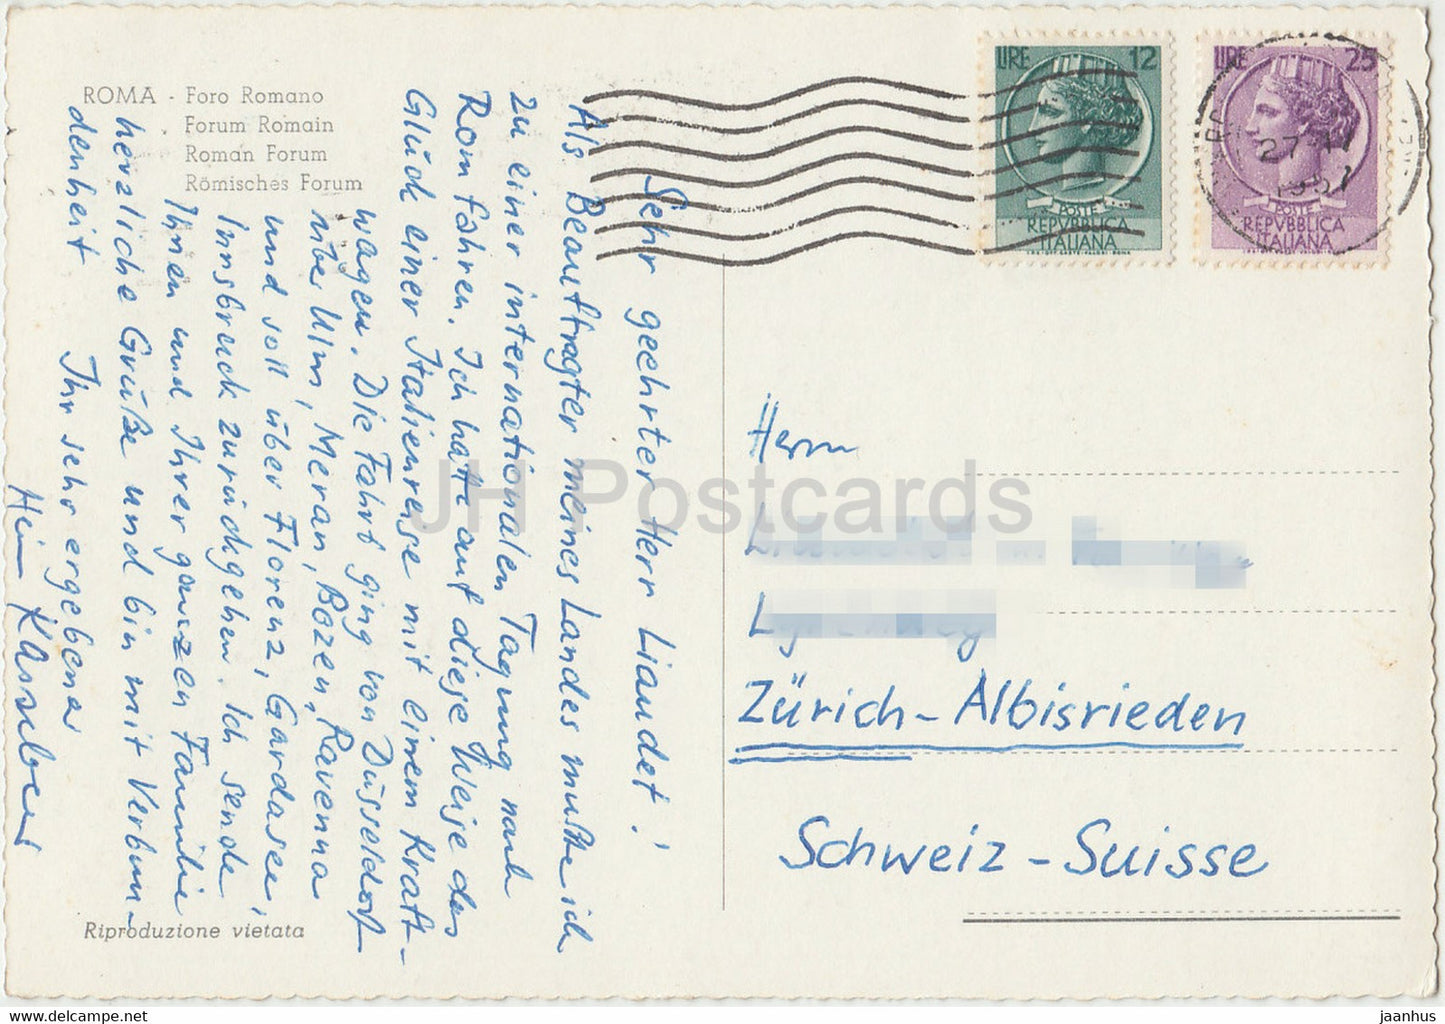 ROMA - Foro Romano
Forum Romain
Roman Forum
Römisches Forum
Sehr geehrter Herr Liaudet!
Als Beauftragter meines Landes mußte ich
zu einer internationalen Tagung nach
Rom fahren. Ich hatte auf diese Weise das
Glück einer Italienreise mit einem Kraft-
wagen. Die Fahrt ging von Düsseldorf
über Ulm, Meran, Bozen, Ravenna
und soll über Florenz, Gardasee,
Innsbruck zurückgehen. Ich sende
Ihnen und Ihrer ganzen Familie
herzliche Grüße und bin mit Verbun-
denheit Ihr sehr ergebener
Riproduzione vietata
LIRE 12
POSTE
REPVBBLICA
ITALIANA
LIRE 25
POSTE
REPVBBLICA
ITALIANA
27
1957
Herrn
Zürich-Albisrieden
Schweiz-Suisse
JH Postcards
jaanhus © www.delcampe.net